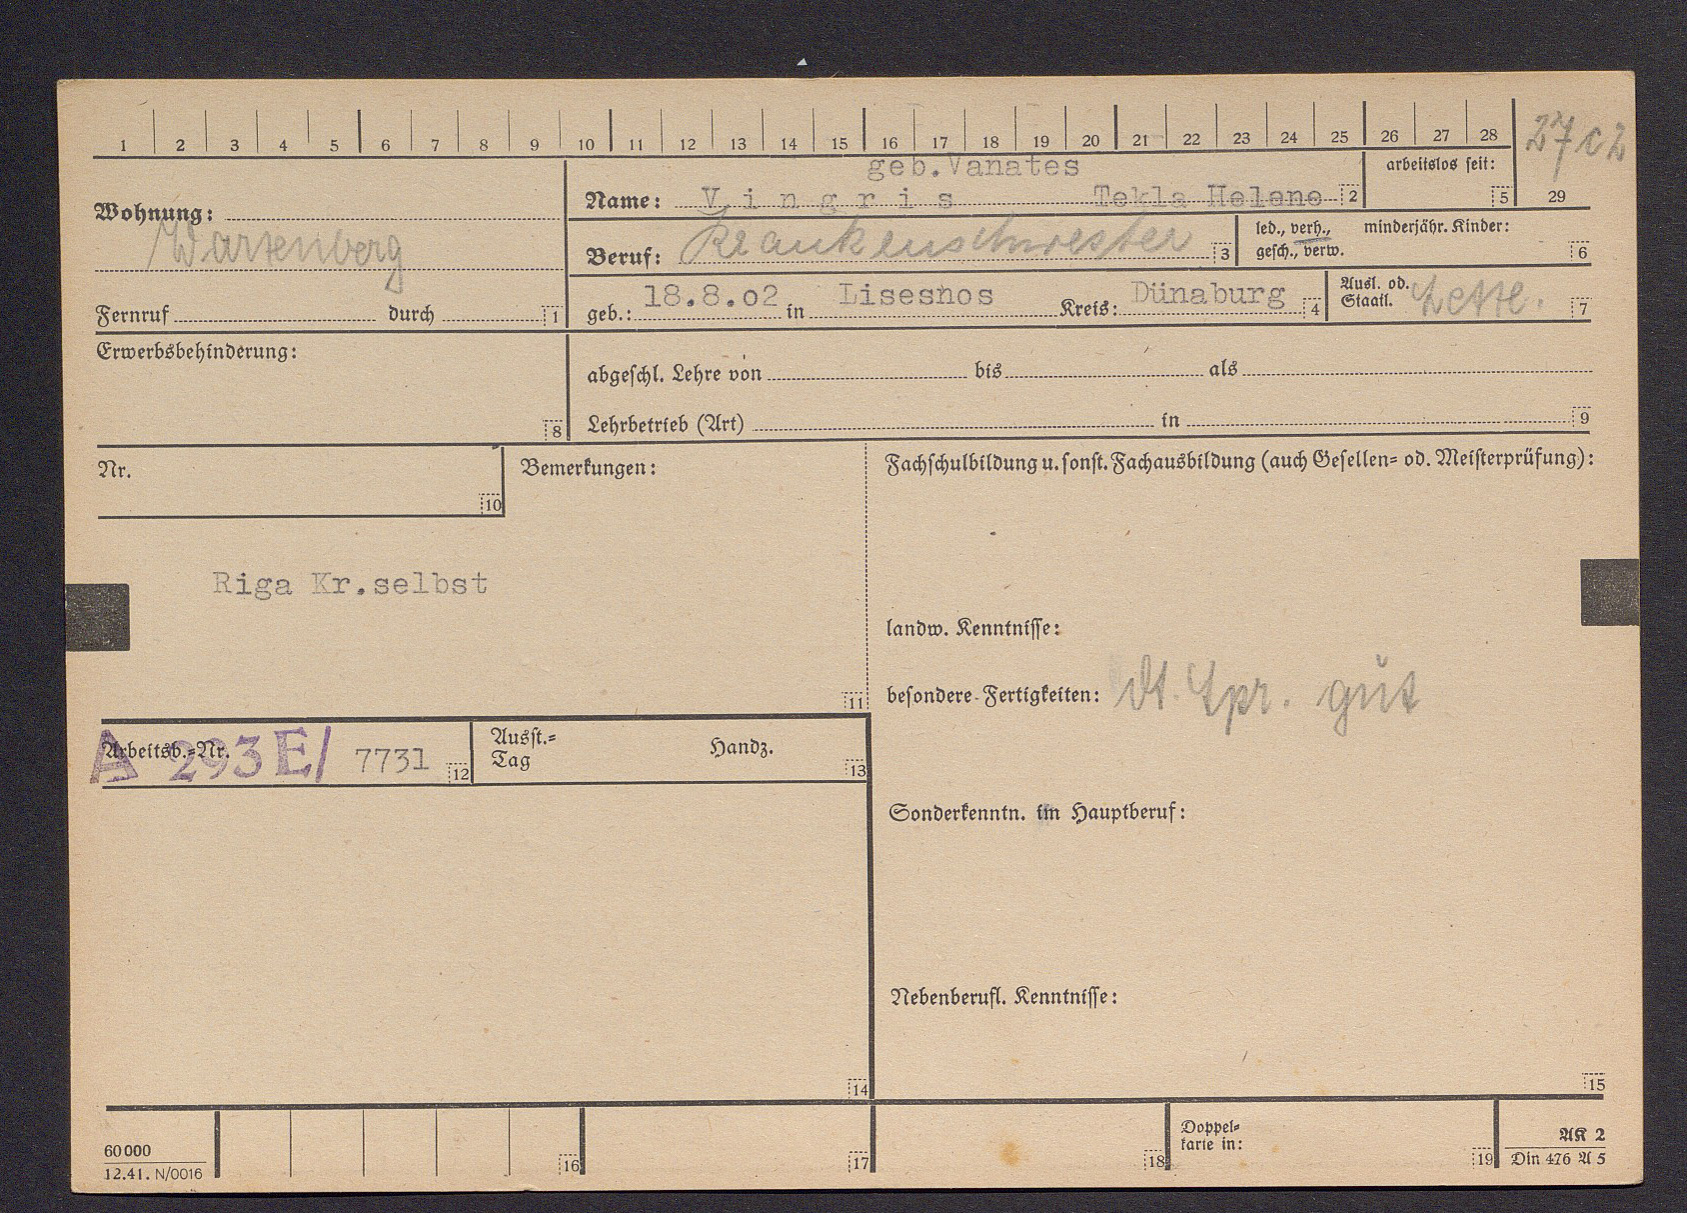 1 2 3 4 5 6 7 8 9 10 11 12 13 14 15 16 17 18 19 20 21 22 23 24 25 26 27 28
27 02
29
geb.Vanates
Name: V i n g r i s Tekla Helene 2
arbeitslos seit:
5
Wohnung:
Wartenberg
Fernruf durch 1
Beruf: Krankenschwester 3
led., verh.,
gesch., verw.
minderjähr. Kinder:
6
geb.: 18.8.02 in Lisesnos Kreis: Dünaburg 4
Ausl. od.
Staatl. Lette. 7
Erwerbsbehinderung:
8
abgeschl. Lehre von bis als
Lehrbetrieb (Art) in 9
Nr.
10
Bemerkungen:
Riga Kr.selbst
11
Fachschulbildung u. sonst. Fachausbildung (auch Gesellen- od. Meisterprüfung):
landw. Kenntnisse:
besondere Fertigkeiten: Dt. Spr. gut
Arbeitsb.-Nr.
A 293 E/ 7731 12
Ausst.-
Tag
Handz.
13
Sonderkenntn. im Hauptberuf:
Nebenberufl. Kenntnisse:
14
15
60000
12.41. N/0016
16
17
18
Doppel-
karte in:
19
AK 2
Din 476 A 5